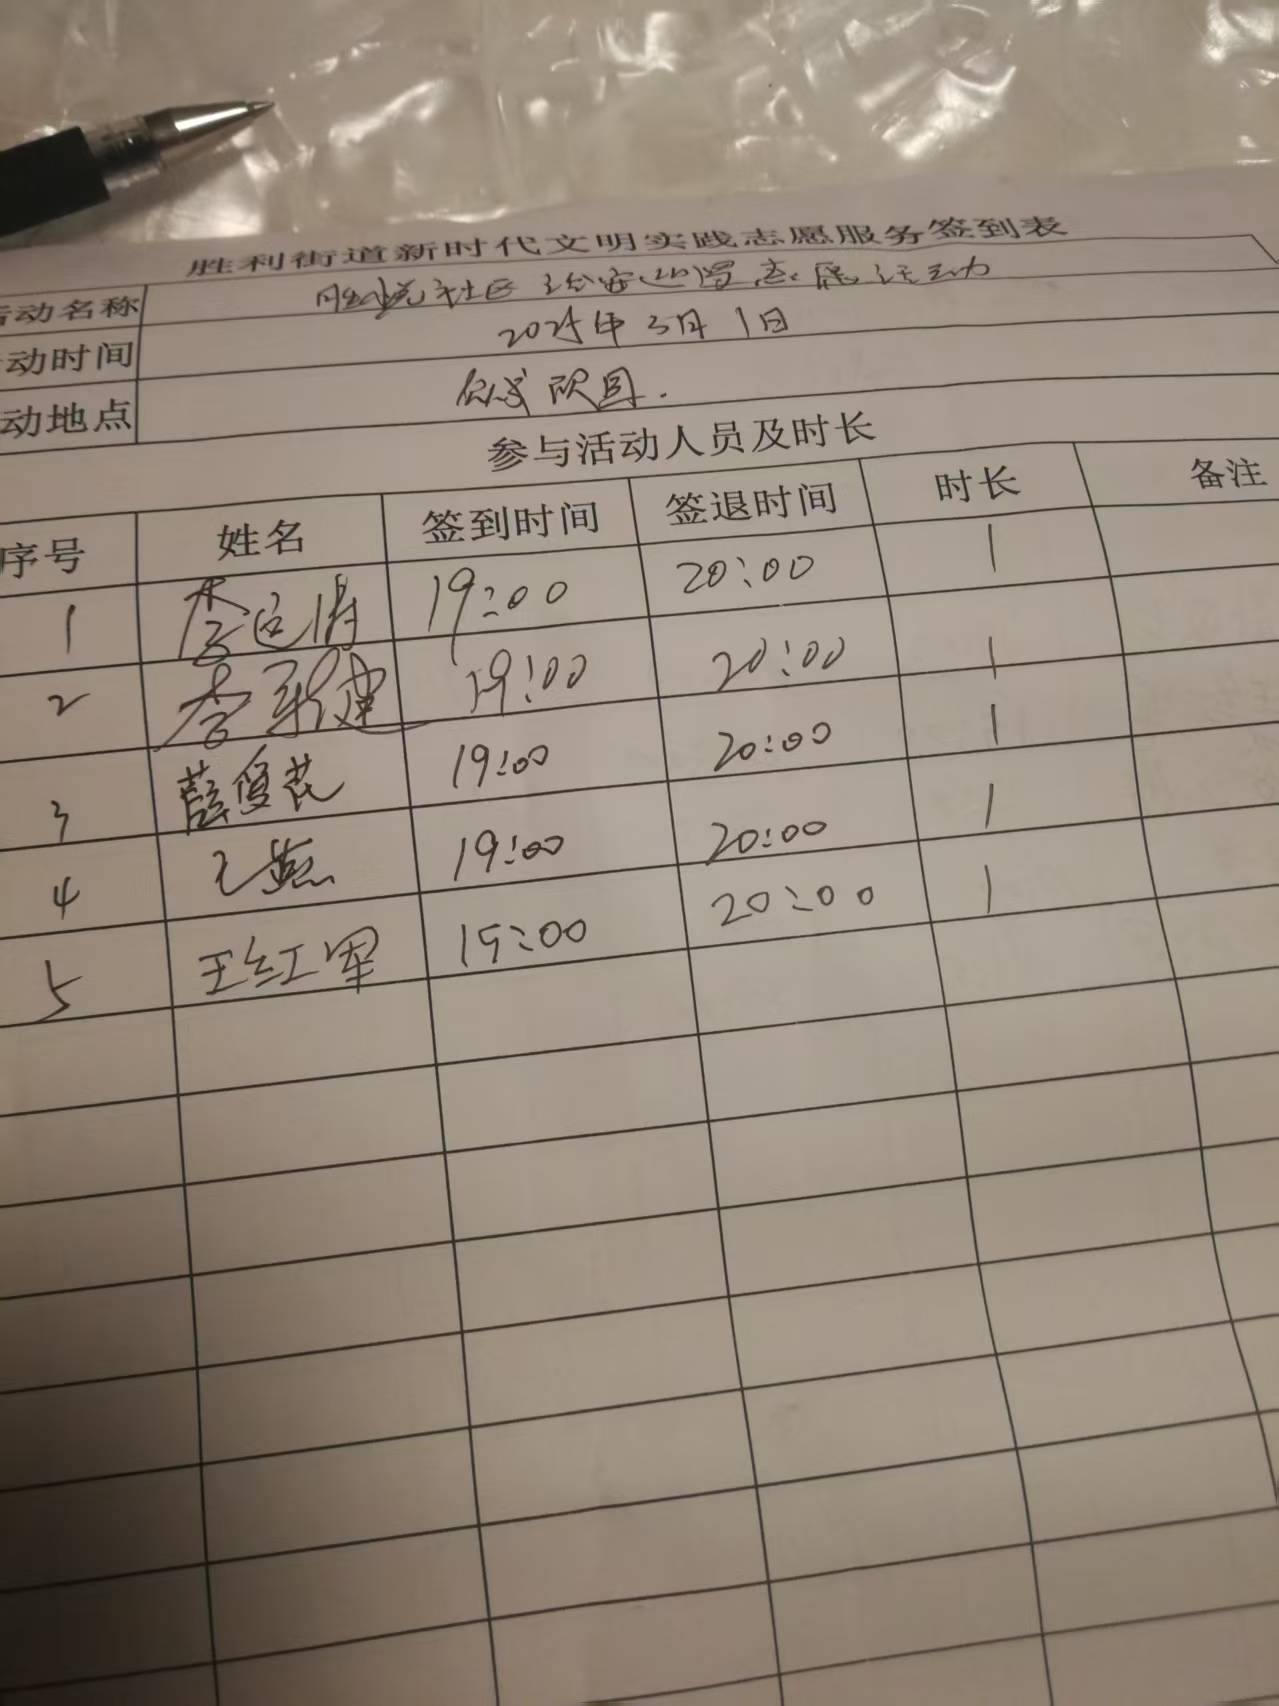 胜利街道新时代文明实践志愿服务签到表
活动名称 社区治安巡逻志愿活动
动时间 2025年3月1日
动地点
参与活动人员及时长
序号 姓名 签到时间 签退时间 时长 备注
1 李 19:00 20:00 1
2 李新建 19:00 20:00 1
3 薛俊花 19:00 20:00 1
4 王燕 19:00 20:00 1
5 王红军 19:00 20:00 1